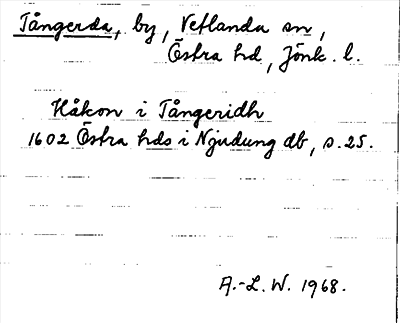 Tångerda, by, Vetlanda sn,
Östra hd, Jönk. l.
Håkon i Tångeridh
1602 Östra hds i Njudung db, s. 25.
A.-L. W. 1968.